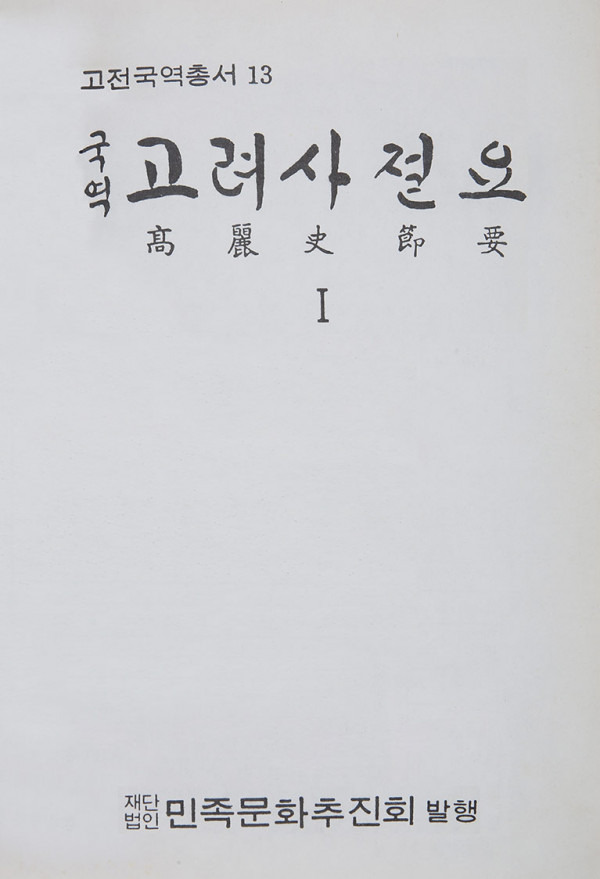 고전국역총서 13
국역 고려사절요
高麗史節要
I
재단법인 민족문화추진회 발행